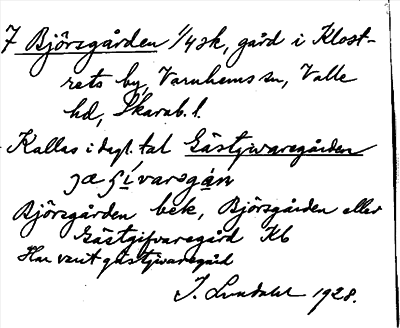 7 Björsgården 1/4 sk, gård i Klost-
rets by, Varnhems sn, Valle
hd, Skarab. l.
Kallas i dagl. tal Gästjivaregården
Björsgården bek, Björsgården eller
Gästgifvaregård Kb
Har varit gästjivaregård
J. Lundahl 1928.